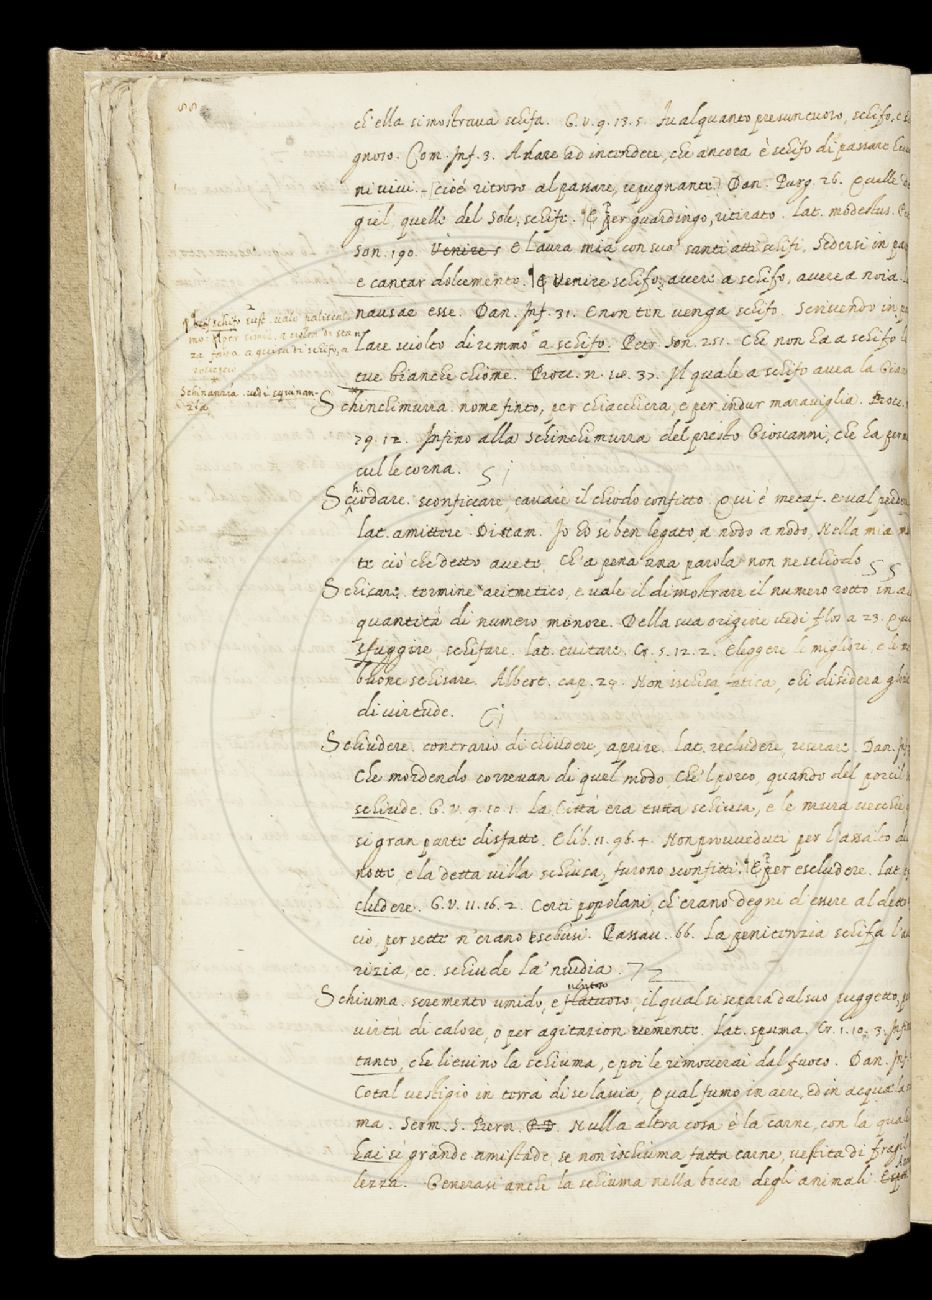 ch'ella si mostraua schifa. G. V. 9. 13. 5. Fu alquanto presuntuoso, schifo,
gnoso. Com. Inf. 3. Andare ad incendere, che ancora è schifo di passare
ni uiui. cioè ritroso al passare, repugnante. Dan. Purg. 26. Quelle
giel, quelle del Sole, schife. E per guardingo, ritirato. lat. modestus.
son. 190. Venire s E laura mia con suoi santi atti schifi, Sedersi in
e cantar dolcemente. E Venire schifo, auere a schifo, auere a noia.
nausae esse. Dan. Inf. 31. E non tin uenga schifo. Scriuendo in
schifo sust. vale
Schinanzia. uedi squinan-
zia
a schifo. Petr. Son. 251. Che non ha a schifo
tue bianche chiome. Bocc. n. 37. Il quale a schifo auea la
Schinchimurra nome finto, per chiacchiera, e per indur marauiglia. Bocc.
79. 12. Infino alla schinchimurra del presto Giouanni, che ha per
cul le corna.
Schiodare. sconficcare, cauare il chiodo confitto. Qui è metaf. e val perder
lat. amittere. Dittam. Io ho sì ben legato, a nodo a nodo, Nella mia
te ciò che detto auete, Ch'a pena una parola non ne schiodo
Schisare. termine aritmetico, e uale il dimostrare il numero rotto in
quantità di numero minore. Della sua origine uedi flos a 23.
sfuggire schifare. lat. euitare. Cr. 5. 12. 2. Eleggere le migliori, e le
buone schisare. Albert. cap. 24. Non ischisa fatica, chi disidera
di uirtude.
Schiudere. contrario di chiudere, aprire. lat. recludere, reserare. Dan.
Che mordendo correuan di quel modo, Che'l porco, quando del porcil
schiude. G. V. 9. 10. 1. La Città era tutta schiusa, e le mura uecchie
si gran parte disfatte. E lib. 11. 96. 4. Non proueduti per l'assalto
notte, e la detta uilla schiusa, furono sconfitti. E per escludere. lat.
cludere. G. V. 11. 16. 2. Certi popolani, ch'erano degni d'essere al detto
cio, per sette n'erano eschiusi. Passau. 66. La penitenzia schifa l'
rizia, ec. schiude la nuidia.
uentoso
Schiuma. scremento umido, e flatuoso, il qual si separa dal suo suggetto,
uirtù di calore, o per agitazion uemente. Lat. spuma. Cr. 1. 10. 3.
tanto, che lieuino la schiuma, e poi le rimouerai dal fuoco. Dan. Inf.
Cotal uestigio in terra di se lascia, Qual fumo in aere, ed in acqua la
ma. Serm. S. Bern. Nulla altra cosa è la carne, con la quale
hai sì grande amistade, se non ischiuma fatta carne, uestita di
lezza. Generasi anche la schiuma nella bocca degli animali.